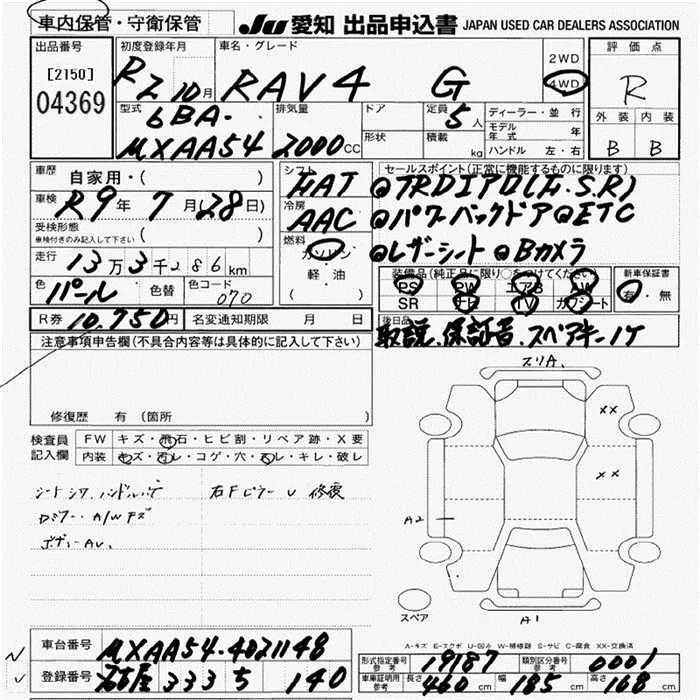 車内保管・守衛保管
JU 愛知 出品申込書 JAPAN USED CAR DEALERS ASSOCIATION
出品番号
[2150]
04369
初度登録年月
R2 10月
車名・グレード
RAV4 G
2WD
4WD
評価点
R
外装 内装
B B
型式
6BA-
MXAA54
排気量
2000cc
ドア
形状
定員
5人
積載
kg
ディーラー・並行
モデル年式 年
ハンドル 左・右
車歴 自家用・( )
車検 R9年7月(28日)
受検形態
車検付きのみ記入して下さい ( )
走行 13万3千286km
色 パール 色替 色コード 070
シフト
FAT
冷房
AAC
燃料
ガソリン
軽・油
( )
セールスポイント(正常に機能するものに限ります)
◎TRDエアロ(F.S.R)
◎パワーバックドア◎ETC
◎レザーシート◎Bカメラ
装備品(純正品に限り○をつけてください)
PS PW エアB AW
SR ナビ TV カワシート
新車保証書
有・無
R券 10,750円 名変通知期限 月 日
後日品
取説、保証書、スペアキー1ケ
注意事項申告欄(不具合内容等は具体的に記入して下さい)
修復歴 有(箇所
検査員記入欄
FW キズ・飛石・ヒビ割・リペア跡・X要
内装 キズ・汚レ・コゲ・穴・スレ・キレ・破レ
シートシワ、ハンドル
右Fピラー U 修復
A/Wキズ
スリA.
XX
XX
A2
A1
スペア
A-キズ E-エクボ U-凹み W-補修跡 S-サビ C-腐食 XX-交換済
車台番号 MXAA54-4021148
登録番号 名古屋 333 ち 140
型式指定番号 参考 19187 類別区分番号 参考 0001
車庫証明用 参考 長さ 460cm 幅 185cm 高さ 168cm